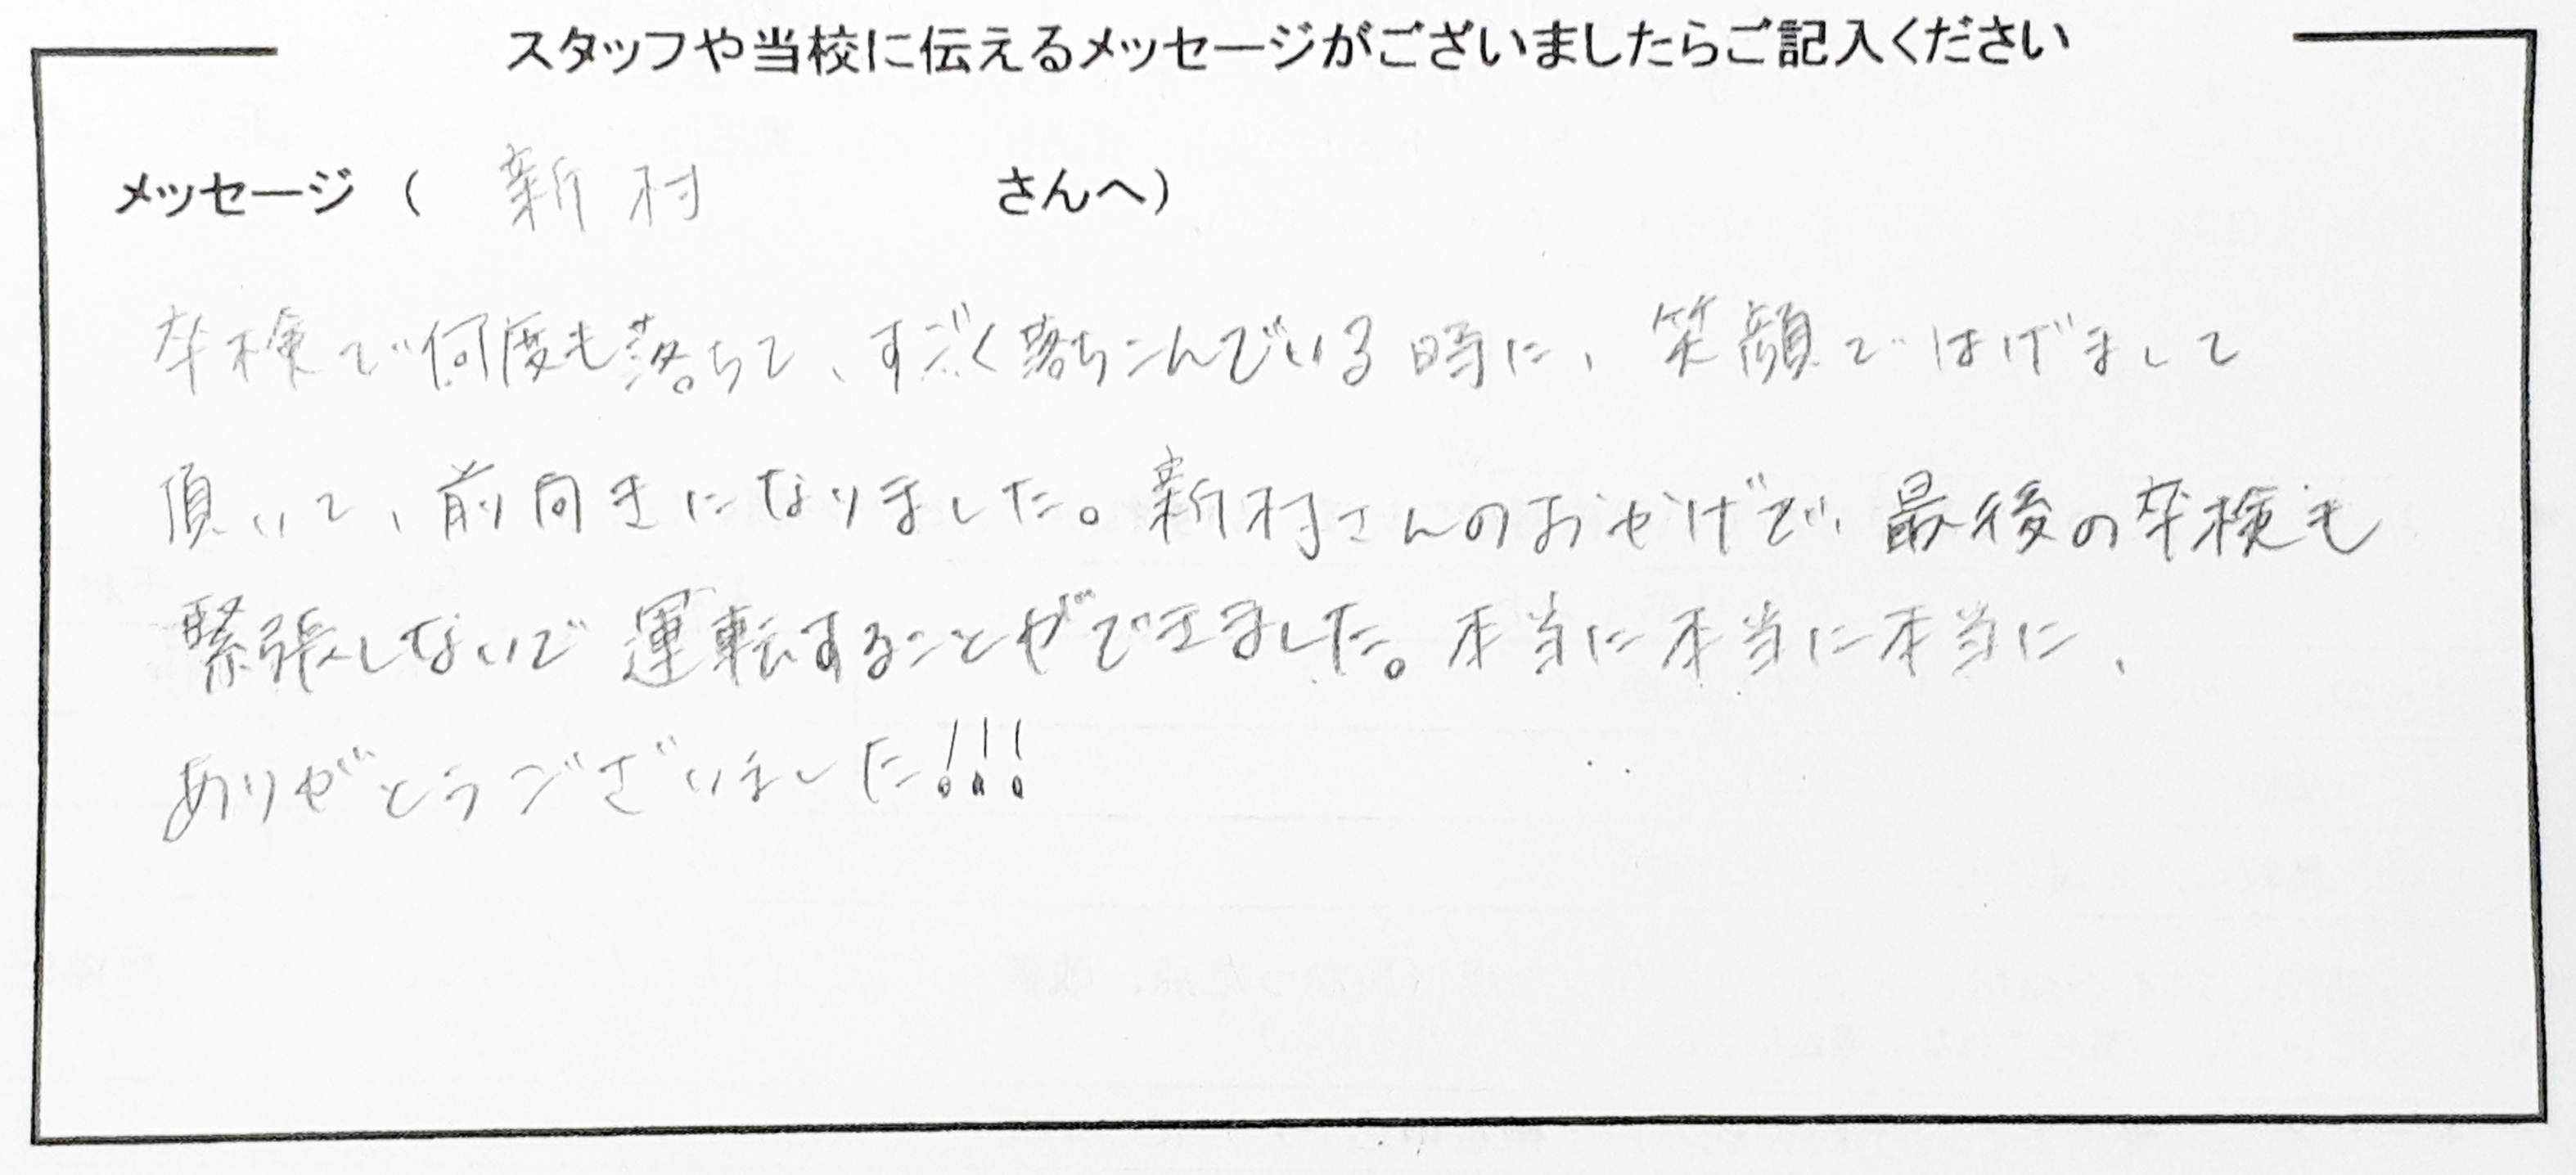 スタッフや当校に伝えるメッセージがございましたらご記入ください
メッセージ（ 新村 さんへ）
卒検で何度も落ちて、すごく落ちこんでいる時に、笑顔ではげまして
頂いて、前向きになりました。新村さんのおかげで、最後の卒検も
緊張しないで運転することができました。本当に本当に本当に、
ありがとうございました!!!